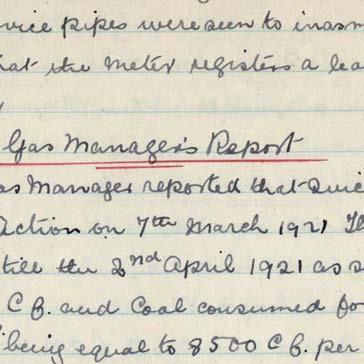 vice pipes were seen to inasm
hat the meter registers a lea
Gas Manager's Report
as Manager reported that Quic
Action on 7th March 1921 Th
till the 2nd April 1921 as s
C f. and Coal consumed fo
being equal to 8500 C f. per